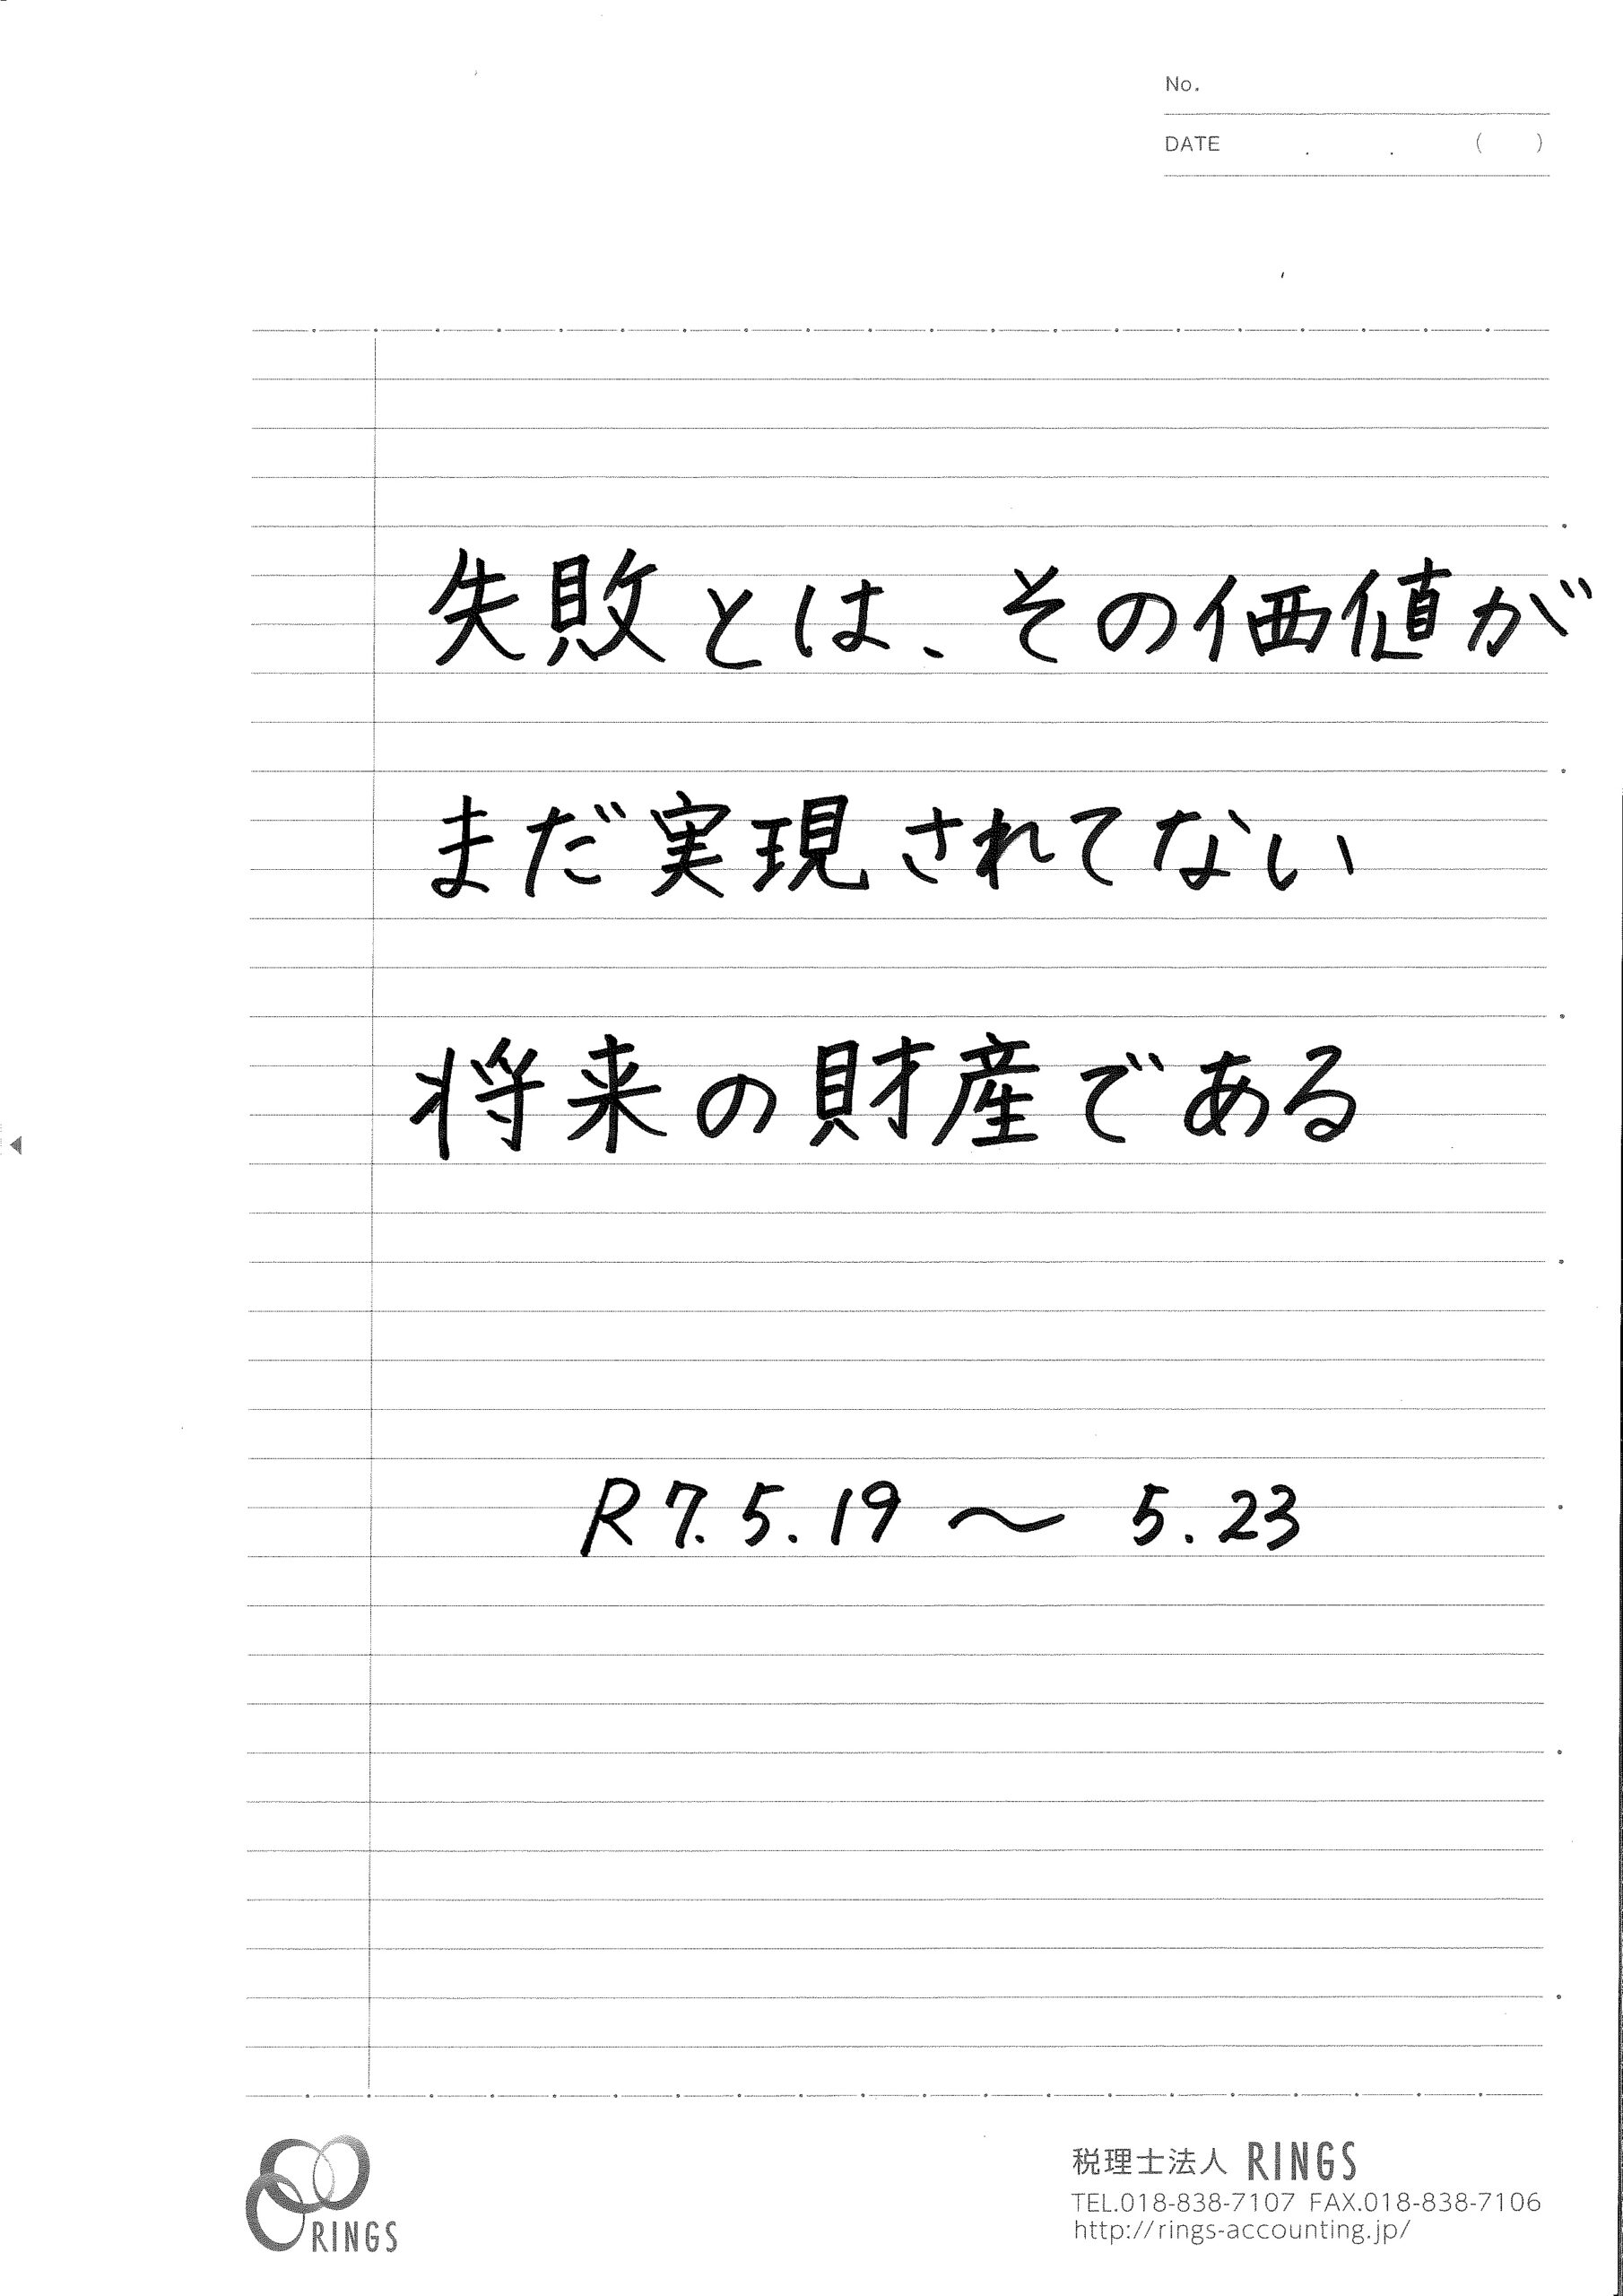 No.
DATE . . ( )
失敗とは、その価値が
まだ実現されてない
将来の財産である
R7.5.19 〜 5.23
RINGS
税理士法人 RINGS
TEL.018-838-7107 FAX.018-838-7106
http://rings-accounting.jp/